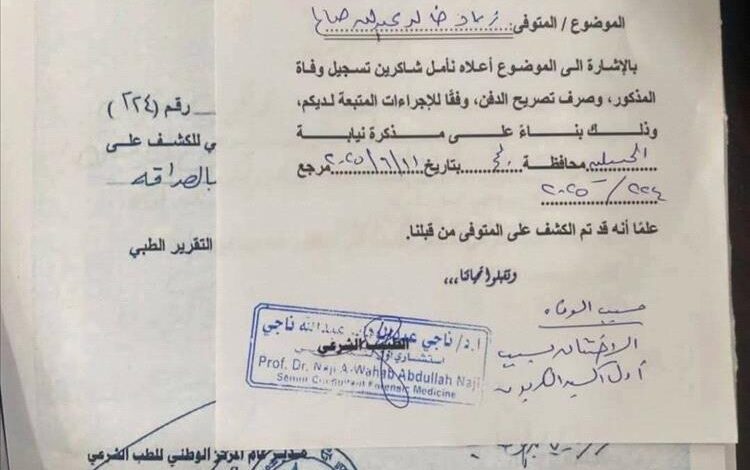 الموضوع / المتوفى: زياد خالد عبدالله صالح
بالإشارة الى الموضوع أعلاه نأمل شاكرين تسجيل وفاة
المذكور، وصرف تصريح الدفن، وفقًا للإجراءات المتبعة لديكم،
وذلك بناءً على مذكرة نيابة
محافظة بتاريخ ٢٠٢٥/٦/١١ مرجع
٢٢٤/٢٠٢٥
علمًا أنه قد تم الكشف على المتوفى من قبلنا.
وتقبلوا تحياتنا،،،
سبب الوفاه
الاختناق بسبب
أول اكسيد الكربون
الطبيب الشرعي
أ.د/ ناجي عبدالله ناجي
Prof. Dr. Naji A-Wahab Abdullah Naji
Senior Consultant Forensic Medicine
رقم (٢٢٤)
ي للكشف على
بالصداقه
التقرير الطبي
مدير عام المركز الوطني للطب الشرعي